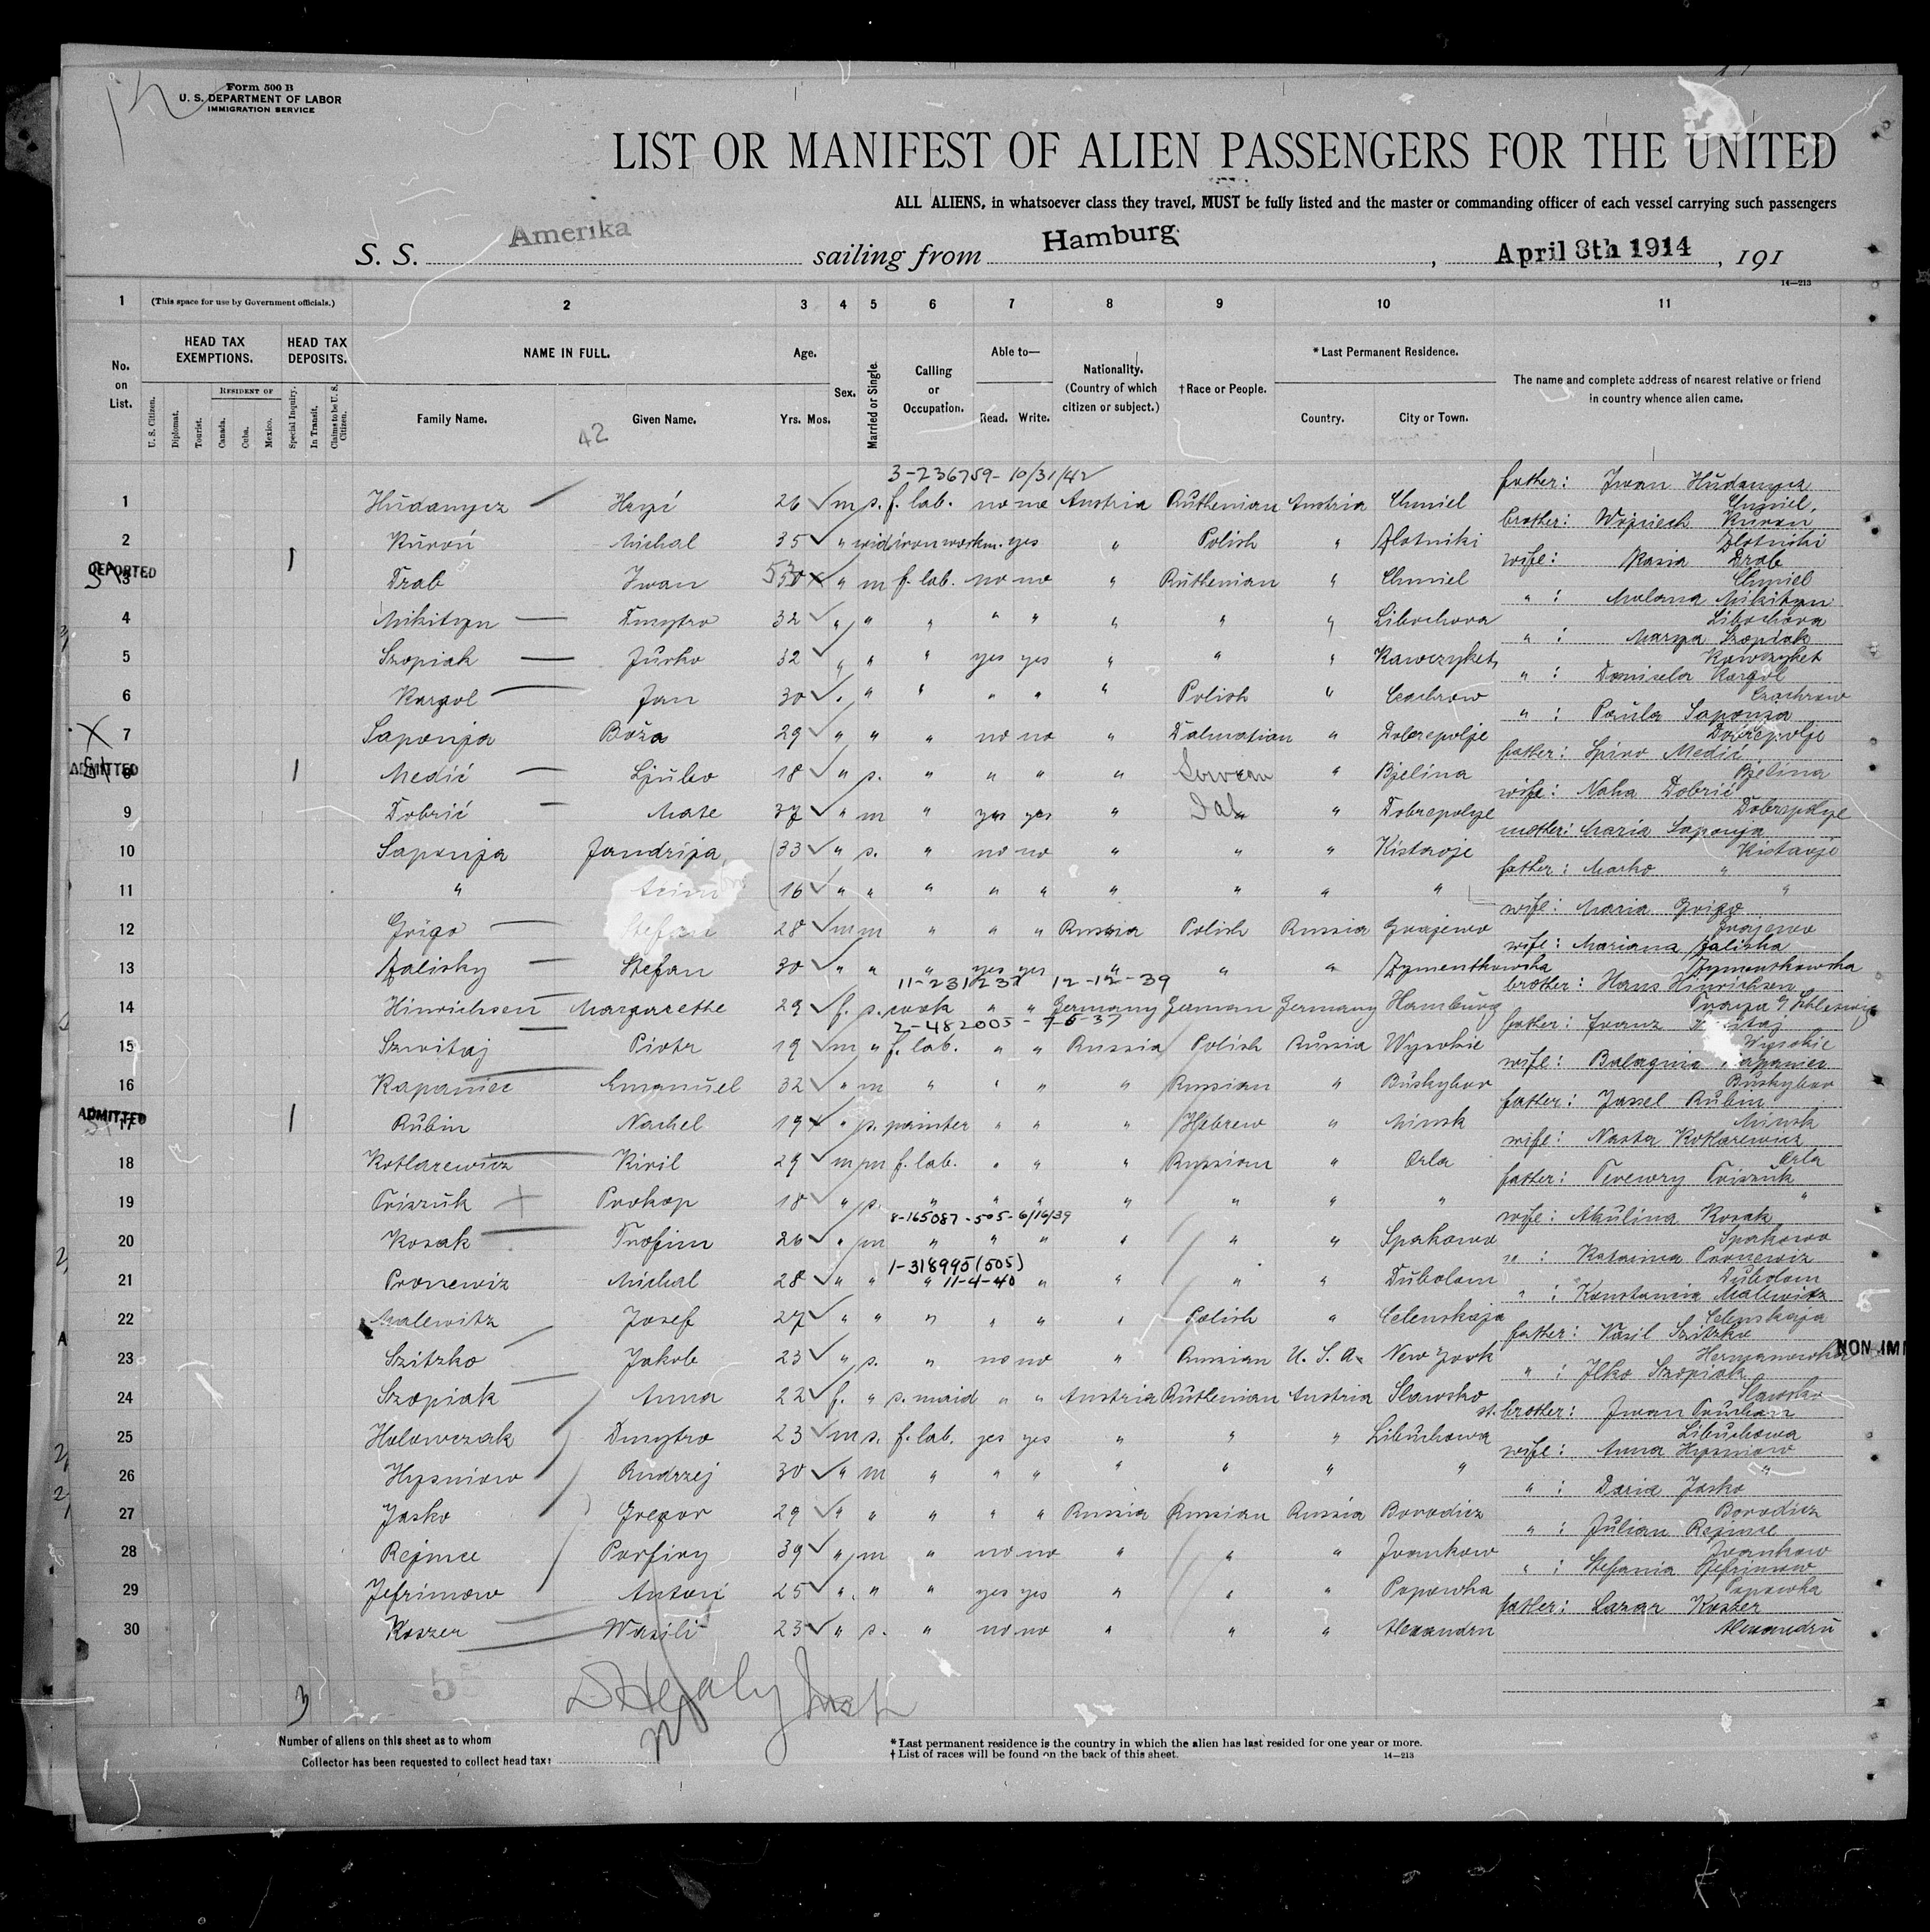 Form 500 B
U. S. DEPARTMENT OF LABOR
IMMIGRATION SERVICE
LIST OR MANIFEST OF ALIEN PASSENGERS FOR THE UNITED
ALL ALIENS, in whatsoever class they travel, MUST be fully listed and the master or commanding officer of each vessel carrying such passengers
S. S. Amerika sailing from Hamburg, April 8th 1914, 191
14—213
1 (This space for use by Government officials.) 2 3 4 5 6 7 8 9 10 11
No. on List. HEAD TAX EXEMPTIONS. HEAD TAX DEPOSITS. NAME IN FULL. Age. Sex. Married or Single. Calling or Occupation. Able to— Nationality. (Country of which citizen or subject.) †Race or People. *Last Permanent Residence. The name and complete address of nearest relative or friend in country whence alien came.
U. S. Citizen. Diplomat. Tourist. RESIDENT OF Canada. Cuba. Mexico. Special Inquiry. In Transit. Claims to be U. S. Citizen. Family Name. Given Name. Yrs. Mos. Read. Write. Country. City or Town.
42
3-236759- 10/31/42
1 Hudanycz 26 m s. f. lab. no no Austria Ruthenian Austria Chmiel father: Iwan Hudanycz Chmiel,
2 Kuroń Michal 35 " wid iron workm. yes " Polish " Zlotniki brother: Wojciech Kuron Zlotniki
DEPORTED 3 Drab Iwan 50 " m f. lab. no no " Ruthenian " Chmiel wife: Kasia Drab Chmiel
4 Mikityn Dmytro 32 " " " " " " " " Libochora " : Malana Mikityn Libochora
5 Szopiak Jurko 32 " " " yes yes " " " Kawczyket " : Marya Szopiak Kawczyket
6 Kargol Jan 30 " " " " " " Polish " Czachrow " : Domicela Kargol Czachrow
7 Saponja Boža 29 " " " no no " Dalmatian " Dobrepolje " : Paula Saponja Dobrepolje
ADMITTED 8 Medić Ljubo 18 " s. " " " " " Bjelina father: Spiro Medić Bjelina
9 Dobrić Mate 37 " m " yes yes " Dal " Dobrepolje wife: Naha Dobrić Dobrepolje
10 Saponja Jandrija 33 " s. " no no " " " Kistanje mother: Maria Saponja Kistanje
11 " 16 " " " " " " " " " father: Marko " "
12 Grigo Stefan 28 m m " " " Russia Polish Russia Grajewo wife: Maria Grigo Grajewo
13 Zalisky Stefan 30 " " " yes yes " " " Zymentkowska wife: Mariana Zaliska Zymentkowska
11-231237 12-12-39
14 Hinrichsen Margarethe 29 f. s. cook " " Germany German Germany Hamburg brother: Hans Hinrichsen
2-482005-7-6-37
15 Szwitaj Piotr 19 m " f. lab. " " Russia Polish Russia Wysokie father: Franz Wysokie
16 Kapaniec Emanuel 32 " m " " " " Russian " Buskybor wife: Kapaniec Buskybor
ADMITTED 17 Rubin Nachel 19 " s. painter " " " Hebrew " Minsk father: Jossel Rubin Minsk
18 Kotlarewicz Kiril 29 m m f. lab. " " " Russian " Orla wife: Nasta Kotlarewicz Orla
19 Prokop 18 " s. " " " " " " " father: "
8-165087-505-6/16/39
20 Kosak Trofim 26 " m " " " " " " Spakowo wife: Akulina Kosak Spakowo
1-318995(505)
21 Pronewiz Michal 28 " " " 11-4-40 " " " " Dubolom " : Katarina Pronewiz Dubolom
22 Malewitz Josef 27 " " " " " " Polish " Celenskaja " : Konstancia Malewitz Celenskaja
23 Szitzko Jakob 23 " s. " no no " Russian U. S. A. New York father: Wasil Szitzko NON IMM
24 Szopiak Anna 22 f. " s. maid " " Austria Ruthenian Austria Slawsko " : Ilko Szopiak Slawsko
25 Holowczak Dmytro 23 m s. f. lab. yes yes " " " Libuchowa st. brother: Iwan Libuchowa
26 Hysniow Andrzej 30 " m " " " " " " " wife: Anna Hysniow "
27 Jasko Gregor 29 " " " " " Russia Russian Russia Borodicz " : Daria Jasko Borodicz
28 Rejmce Porfiry 39 " m " no no " " " Jvankow " : Julian Rejmce Jvankow
29 Jefrimow Antoni 25 " " " yes yes " " " Popowka " : Stefania Jefrimow Popowka
30 Koszer Wasili 23 " s. " no no " " " Alexandru father: Lazar Koszer Alexandru
5
3
Number of aliens on this sheet as to whom
Collector has been requested to collect head tax:
*Last permanent residence is the country in which the alien has last resided for one year or more.
† List of races will be found on the back of this sheet.
14—213